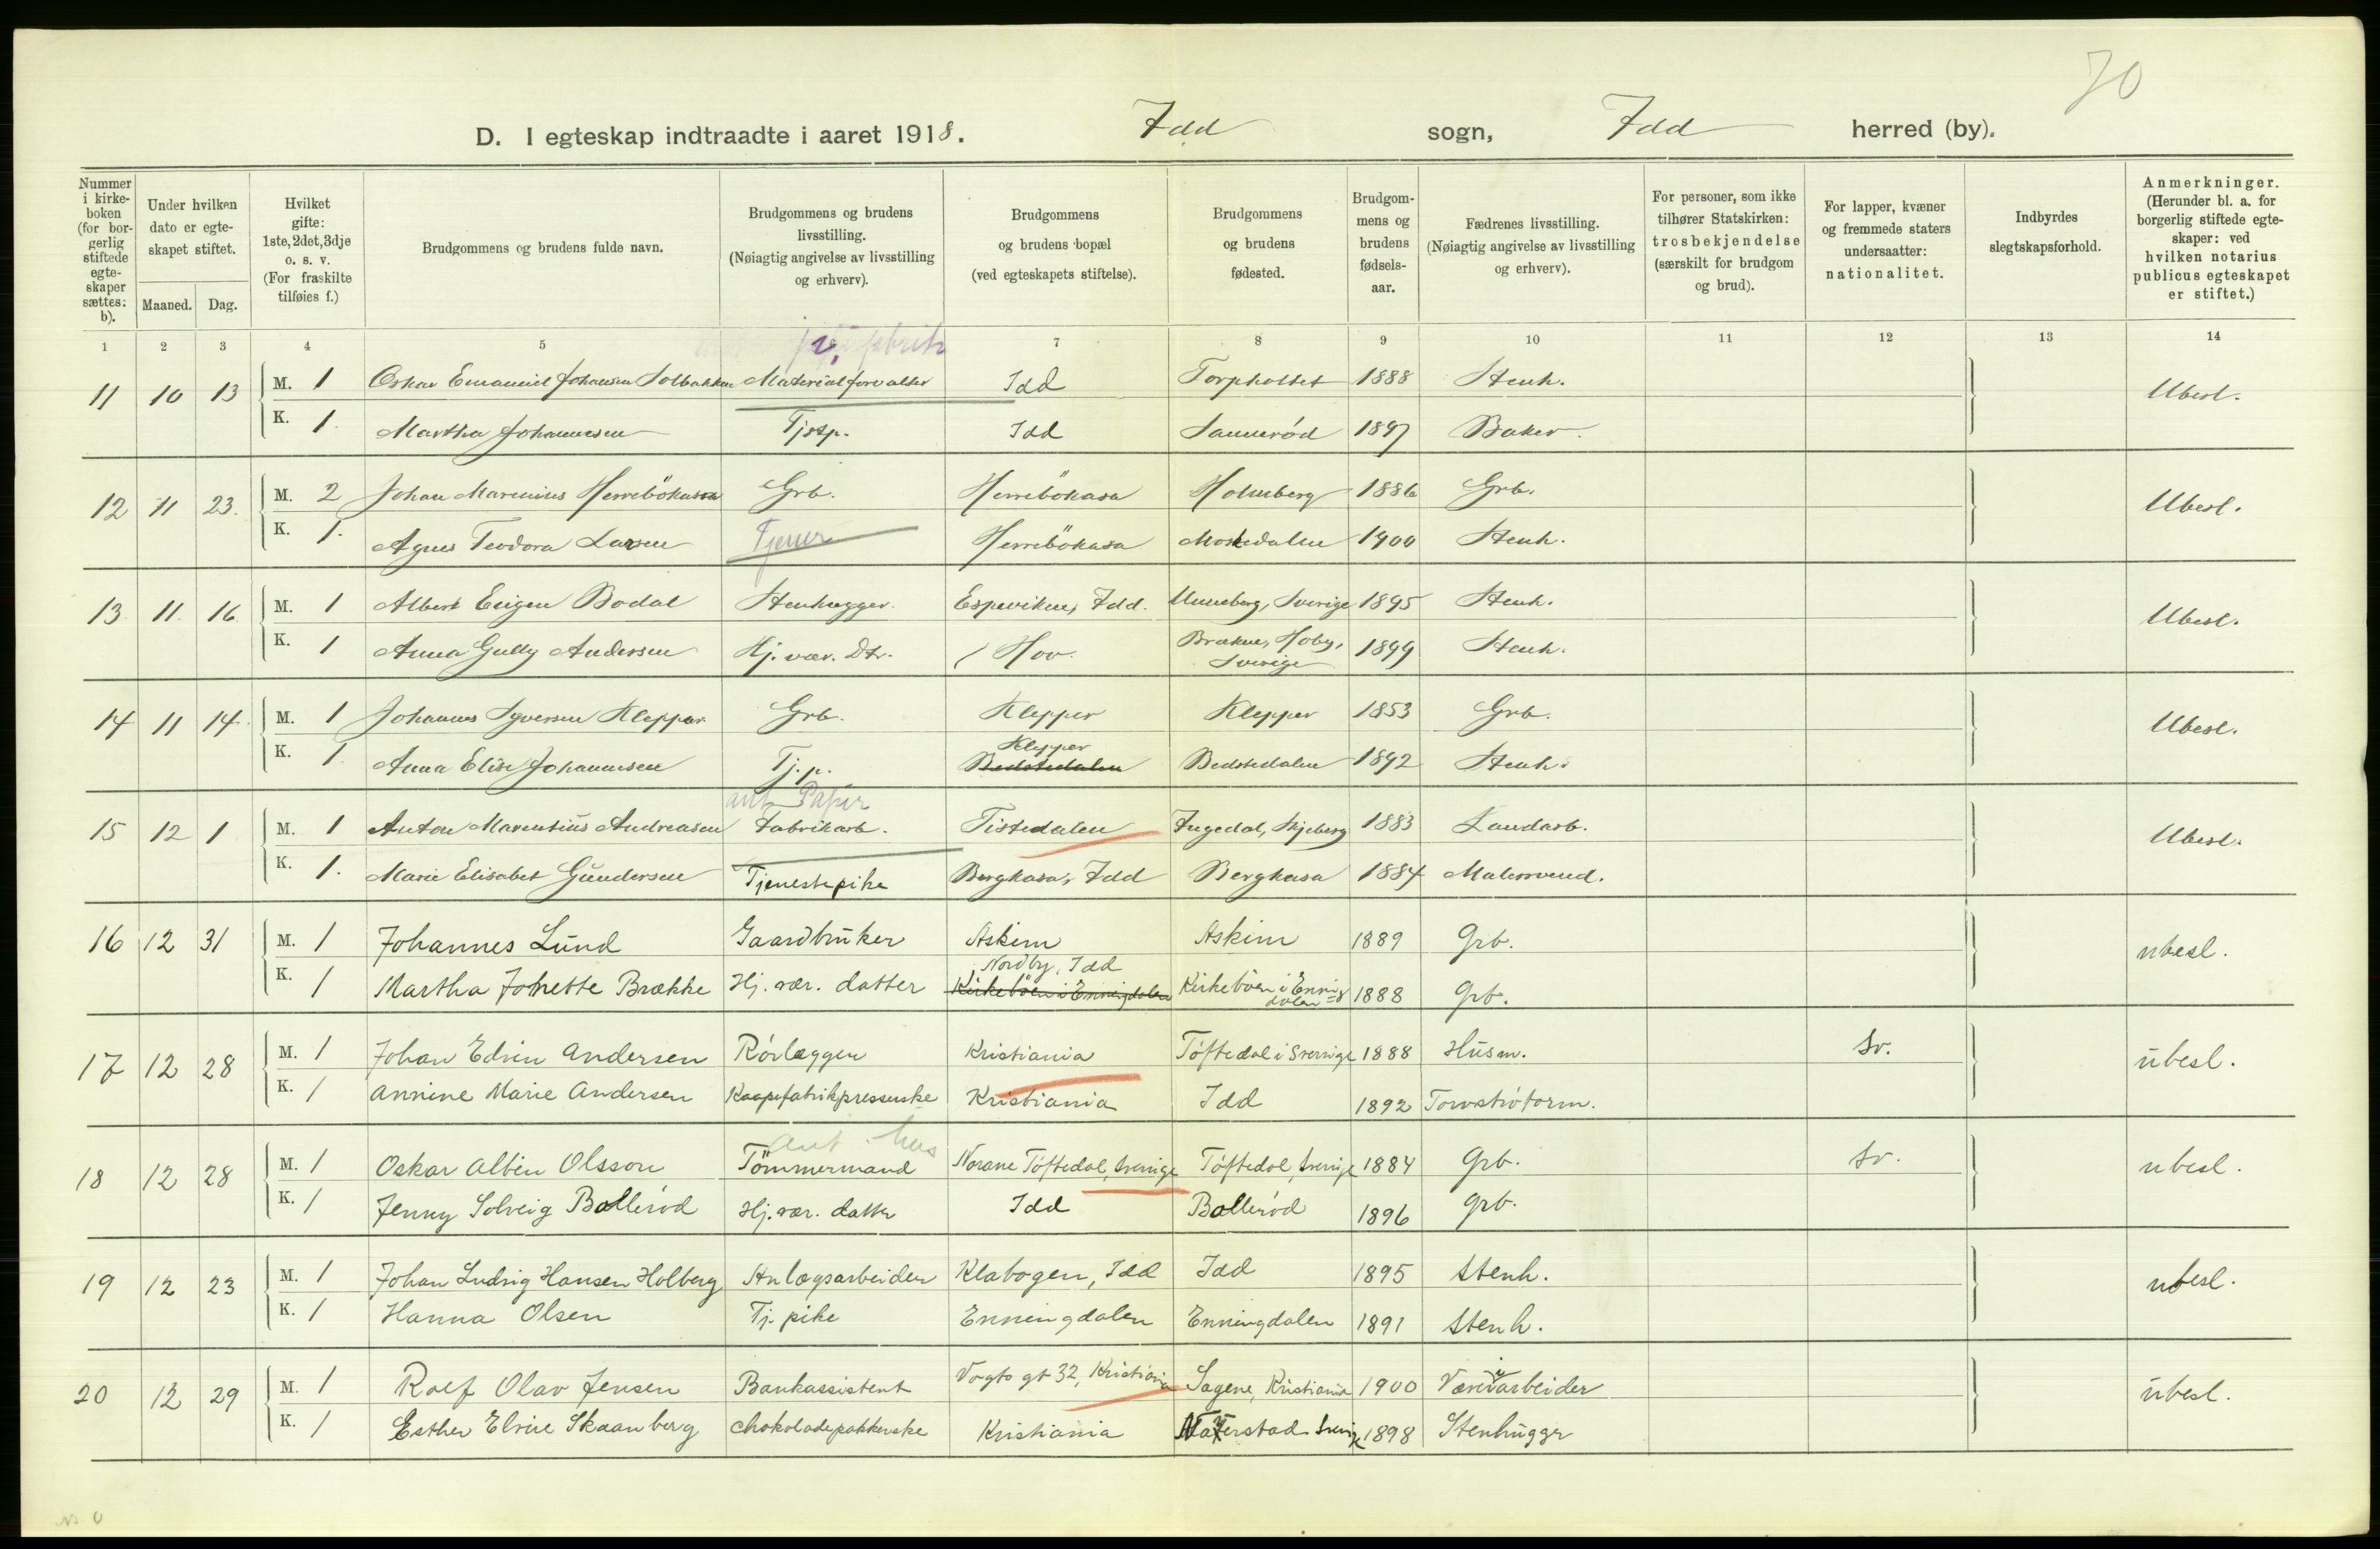 70
D. I egteskap indtraadte i aaret 1918. Idd sogn, Idd herred (by).
Nummer i kirke-boken (for bor-gerlig stiftede egte-skaper sættes: b).
Under hvilken dato er egte-skapet stiftet.
Maaned. Dag.
Hvilket gifte: 1ste, 2det, 3dje o. s. v. (For fraskilte tilføies f.)
Brudgommens og brudens fulde navn.
Brudgommens og brudens livsstilling. (Nøiagtig angivelse av livsstilling og erhverv).
Brudgommens og brudens bopæl (ved egteskapets stiftelse).
Brudgommens og brudens fødested.
Brudgom-mens og brudens fødsels-aar.
Fædrenes livsstilling. (Nøiagtig angivelse av livsstilling og erhverv).
For personer, som ikke tilhører Statskirken: trosbekjendelse (særskilt for brudgom og brud).
For lapper, kvæner og fremmede staters undersaatter: nationalitet.
Indbyrdes slegtskapsforhold.
Anmerkninger. (Herunder bl. a. for borgerlig stiftede egte-skaper: ved hvilken notarius publicus egteskapet er stiftet.)
1 2 3 4 5 7 8 9 10 11 12 13 14
11 10 13 M. 1 Oskar Emanuel Johansen Solbakken Materialforvalter Idd Torpholtet 1888 Stenh. Ubesl.
K. 1. Martha Johannesen Tjstp. Idd Sannerød 1897 Baker.
12 11 23. M. 2 Johan Marenius Herrebökasa Grb. Herrebökasa Holmberg 1886 Grb. Ubesl.
K. 1. Agnes Teodora Larsen Tjener Herrebökasa Moskedalen 1900 Stenh.
13 11. 16 M. 1 Albert Eugen Bodal Stenhugger. Espeviken, Idd. Munneberg, Sverige 1895 Stenh. Ubesl.
K. 1 Anna Gully Andersen Hj. vær. Dtr. Hov. Brækne, Hoby, Sverige 1899 Stenh.
14 11 14. M. 1 Johannes Syversen Klepper. Grb. Klepper Klepper 1853 Grb. Ubesl.
Klepper
K. 1. Anna Elise Johannesen Tj.p. Bedstedalen Bedstedalen 1892 Stenh.
ant Papir
15 12 1 M. 1 Anton Marentius Andreasen Fabrikarb. Tistedalen Ingedal, Skjeberg 1883 Landarb. Ubesl.
K. 1. Marie Elisabet Gundersen Tjenestepike Bergkasa, Idd Bergkasa 1884 Malersvend.
16 12 31 M. 1 Johannes Lund Gaardbruker Askim Askim 1889 Grb. ubesl.
Nordby, Idd
K. 1 Martha Jonette Brække Hj. vær. datter Kirkeböen i Enningdalen Kirkeböen i Enningdalen 1888 Grb.
17 12 28 M. 1 Johan Edvin Andersen Rörlægger Kristiania Töftedal i Sverrige 1888 Husm. Sv. ubesl.
K. 1 Annine Marie Andersen Kaapefabrikpresserske Kristiania Idd 1892 Torvströform.
ant hus
18 12 28 M. 1 Oskar Albin Olsson Tömmermand Norane Töftedal, Sverrige Töftedal, Sverrige 1884 Grb. Sv. ubesl.
K. 1 Jenny Solveig Balleröd Hj. vær. datter Idd Balleröd 1896 grb.
19 12 23 M. 1 Johan Ludvig Hansen Holberg Anlægsarbeider Klabogen, Idd Idd 1895 Stenh. ubesl.
K. 1 Hanna Olsen Tj. pike Enningdalen Enningdalen 1891 Stenh.
20 12 29 M. 1 Rolf Olav Jensen Bankassistent Vogts gt 32, Kristiania Sagene, Kristiania 1900 Væveriarbeider ubesl.
K. 1 Esther Elvine Skaanberg Chokoladepakkerske Kristiania Naverstad Sverige 1898 Stenhugger